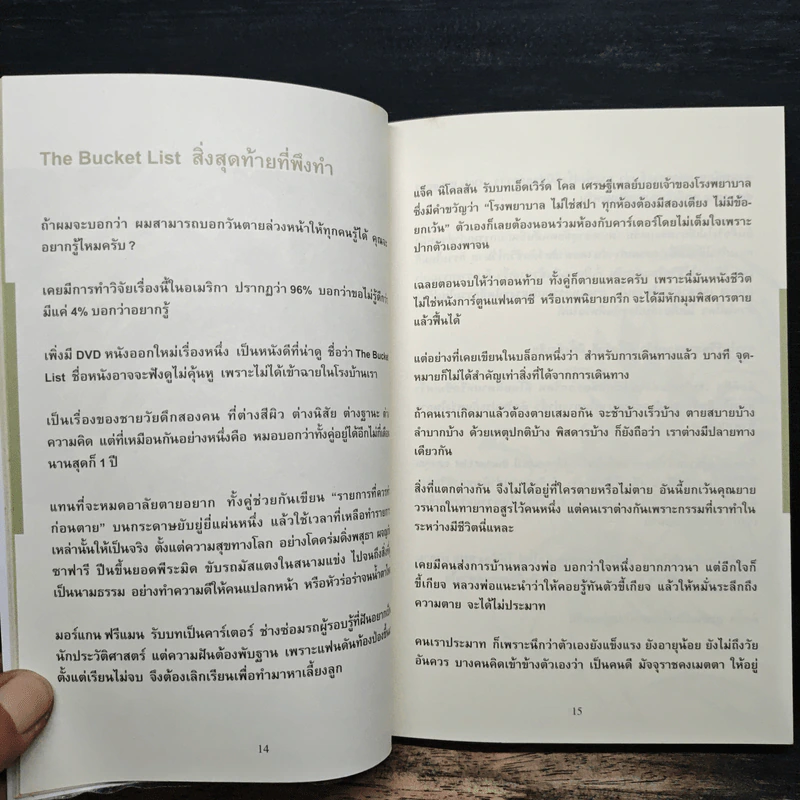 The Bucket List สิ่งสุดท้ายที่พึงทำ
ถ้าผมจะบอกว่า ผมสามารถบอกวันตายล่วงหน้าให้ทุกคนรู้ได้ คุณจะ
อยากรู้ไหมครับ ?
เคยมีการทำวิจัยเรื่องนี้ในอเมริกา ปรากฏว่า 96% บอกว่าขอไม่รู้ดีกว่า
มีแค่ 4% บอกว่าอยากรู้
เพิ่งมี DVD หนังออกใหม่เรื่องหนึ่ง เป็นหนังดีที่น่าดู ชื่อว่า The Bucket
List ชื่อหนังอาจจะฟังดูไม่คุ้นหู เพราะไม่ได้เข้าฉายในโรงบ้านเรา
เป็นเรื่องของชายวัยดึกสองคน ที่ต่างสีผิว ต่างนิสัย ต่างฐานะ
ความคิด แต่ที่เหมือนกันอย่างหนึ่งคือ หมอบอกว่าทั้งคู่อยู่ได้อีกไม่กี่เดือน
นานสุดก็ 1 ปี
แทนที่จะหมดอาลัยตายอยาก ทั้งคู่ช่วยกันเขียน “รายการที่ควรทำ
ก่อนตาย” บนกระดาษยับยู่ยี่แผ่นหนึ่ง แล้วใช้เวลาที่เหลือทำรายการ
เหล่านั้นให้เป็นจริง ตั้งแต่ความสุขทางโลก อย่างโดดร่มดิ่งพสุธา ผจญภัย
ซาฟารี ปีนขึ้นยอดพีระมิด ขับรถมัสแตงในสนามแข่ง ไปจนถึงสิ่งที่
เป็นนามธรรม อย่างทำความดีให้คนแปลกหน้า หรือหัวร่อร่าจนน้ำตาไหล
มอร์แกน ฟรีแมน รับบทเป็นคาร์เตอร์ ช่างซ่อมรถผู้รอบรู้ที่ฝันอยากเป็น
นักประวัติศาสตร์ แต่ความฝันต้องพับฐาน เพราะแฟนดันท้องป่องขึ้นมา
ตั้งแต่เรียนไม่จบ จึงต้องเลิกเรียนเพื่อทำมาหาเลี้ยงลูก
14
แจ็ค นิโคลสัน รับบทเอ็ดเวิร์ด โคล เศรษฐีเพลย์บอยเจ้าของโรงพยาบาล
ซึ่งมีคำขวัญว่า “โรงพยาบาล ไม่ใช่สปา ทุกห้องต้องมีสองเตียง ไม่มีข้อ-
ยกเว้น” ตัวเองก็เลยต้องนอนร่วมห้องกับคาร์เตอร์โดยไม่เต็มใจเพราะ
ปากตัวเองพาจน
เฉลยตอนจบให้ว่าตอนท้าย ทั้งคู่ก็ตายแหละครับ เพราะนี่มันหนังชีวิต
ไม่ใช่หนังการ์ตูนแฟนตาซี หรือเทพนิยายกรีก จะได้มีหักมุมพิสดารตาย
แล้วฟื้นได้
แต่อย่างที่เคยเขียนในบล็อกหนึ่งว่า สำหรับการเดินทางแล้ว บางที จุด-
หมายก็ไม่ได้สำคัญเท่าสิ่งที่ได้จากการเดินทาง
ถ้าคนเราเกิดมาแล้วต้องตายเสมอกัน จะช้าบ้างเร็วบ้าง ตายสบายบ้าง
ลำบากบ้าง ด้วยเหตุปกติบ้าง พิสดารบ้าง ก็ยังถือว่า เราต่างมีปลายทาง
เดียวกัน
สิ่งที่แตกต่างกัน จึงไม่ได้อยู่ที่ใครตายหรือไม่ตาย อันนี้ยกเว้นคุณยาย
วรนาถในทายาทอสูรไว้คนหนึ่ง แต่คนเราต่างกันเพราะกรรมที่เราทำใน
ระหว่างมีชีวิตนี่แหละ
เคยมีคนส่งการบ้านหลวงพ่อ บอกว่าใจหนึ่งอยากภาวนา แต่อีกใจก็
ขี้เกียจ หลวงพ่อแนะนำว่าให้คอยรู้ทันตัวขี้เกียจ แล้วให้หมั่นระลึกถึง
ความตาย จะได้ไม่ประมาท
คนเราประมาท ก็เพราะนึกว่าตัวเองยังแข็งแรง ยังอายุน้อย ยังไม่ถึงวัย
อันควร บางคนคิดเข้าข้างตัวเองว่า เป็นคนดี มัจจุราชคงเมตตา ให้อยู่
15